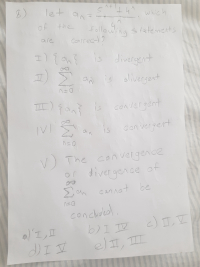 3) Let aₙ = , which
of the following statements
are correct?
I) {aₙ} is divergent
II) ∞ Σ n=0 aₙ is divergent
III) {aₙ} is convergent
IV) ∞ Σ n=0 aₙ is convergent
V) The convergence
or divergence of
∞ Σ n=0 aₙ cannot be
concluded.
a) I, II b) I, IV c) I, V
d) I V e) II, III